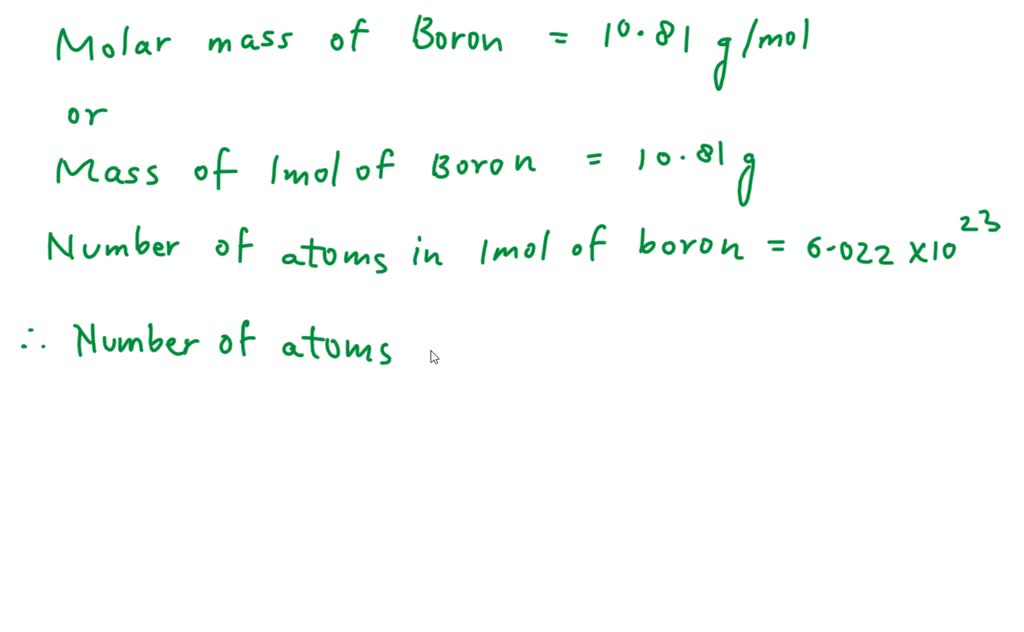 Molar mass of Boron = 10.81 g/mol
or
Mass of 1mol of Boron = 10.81 g
Number of atoms in 1mol of boron = 6.022 x10²³
∴ Number of atoms